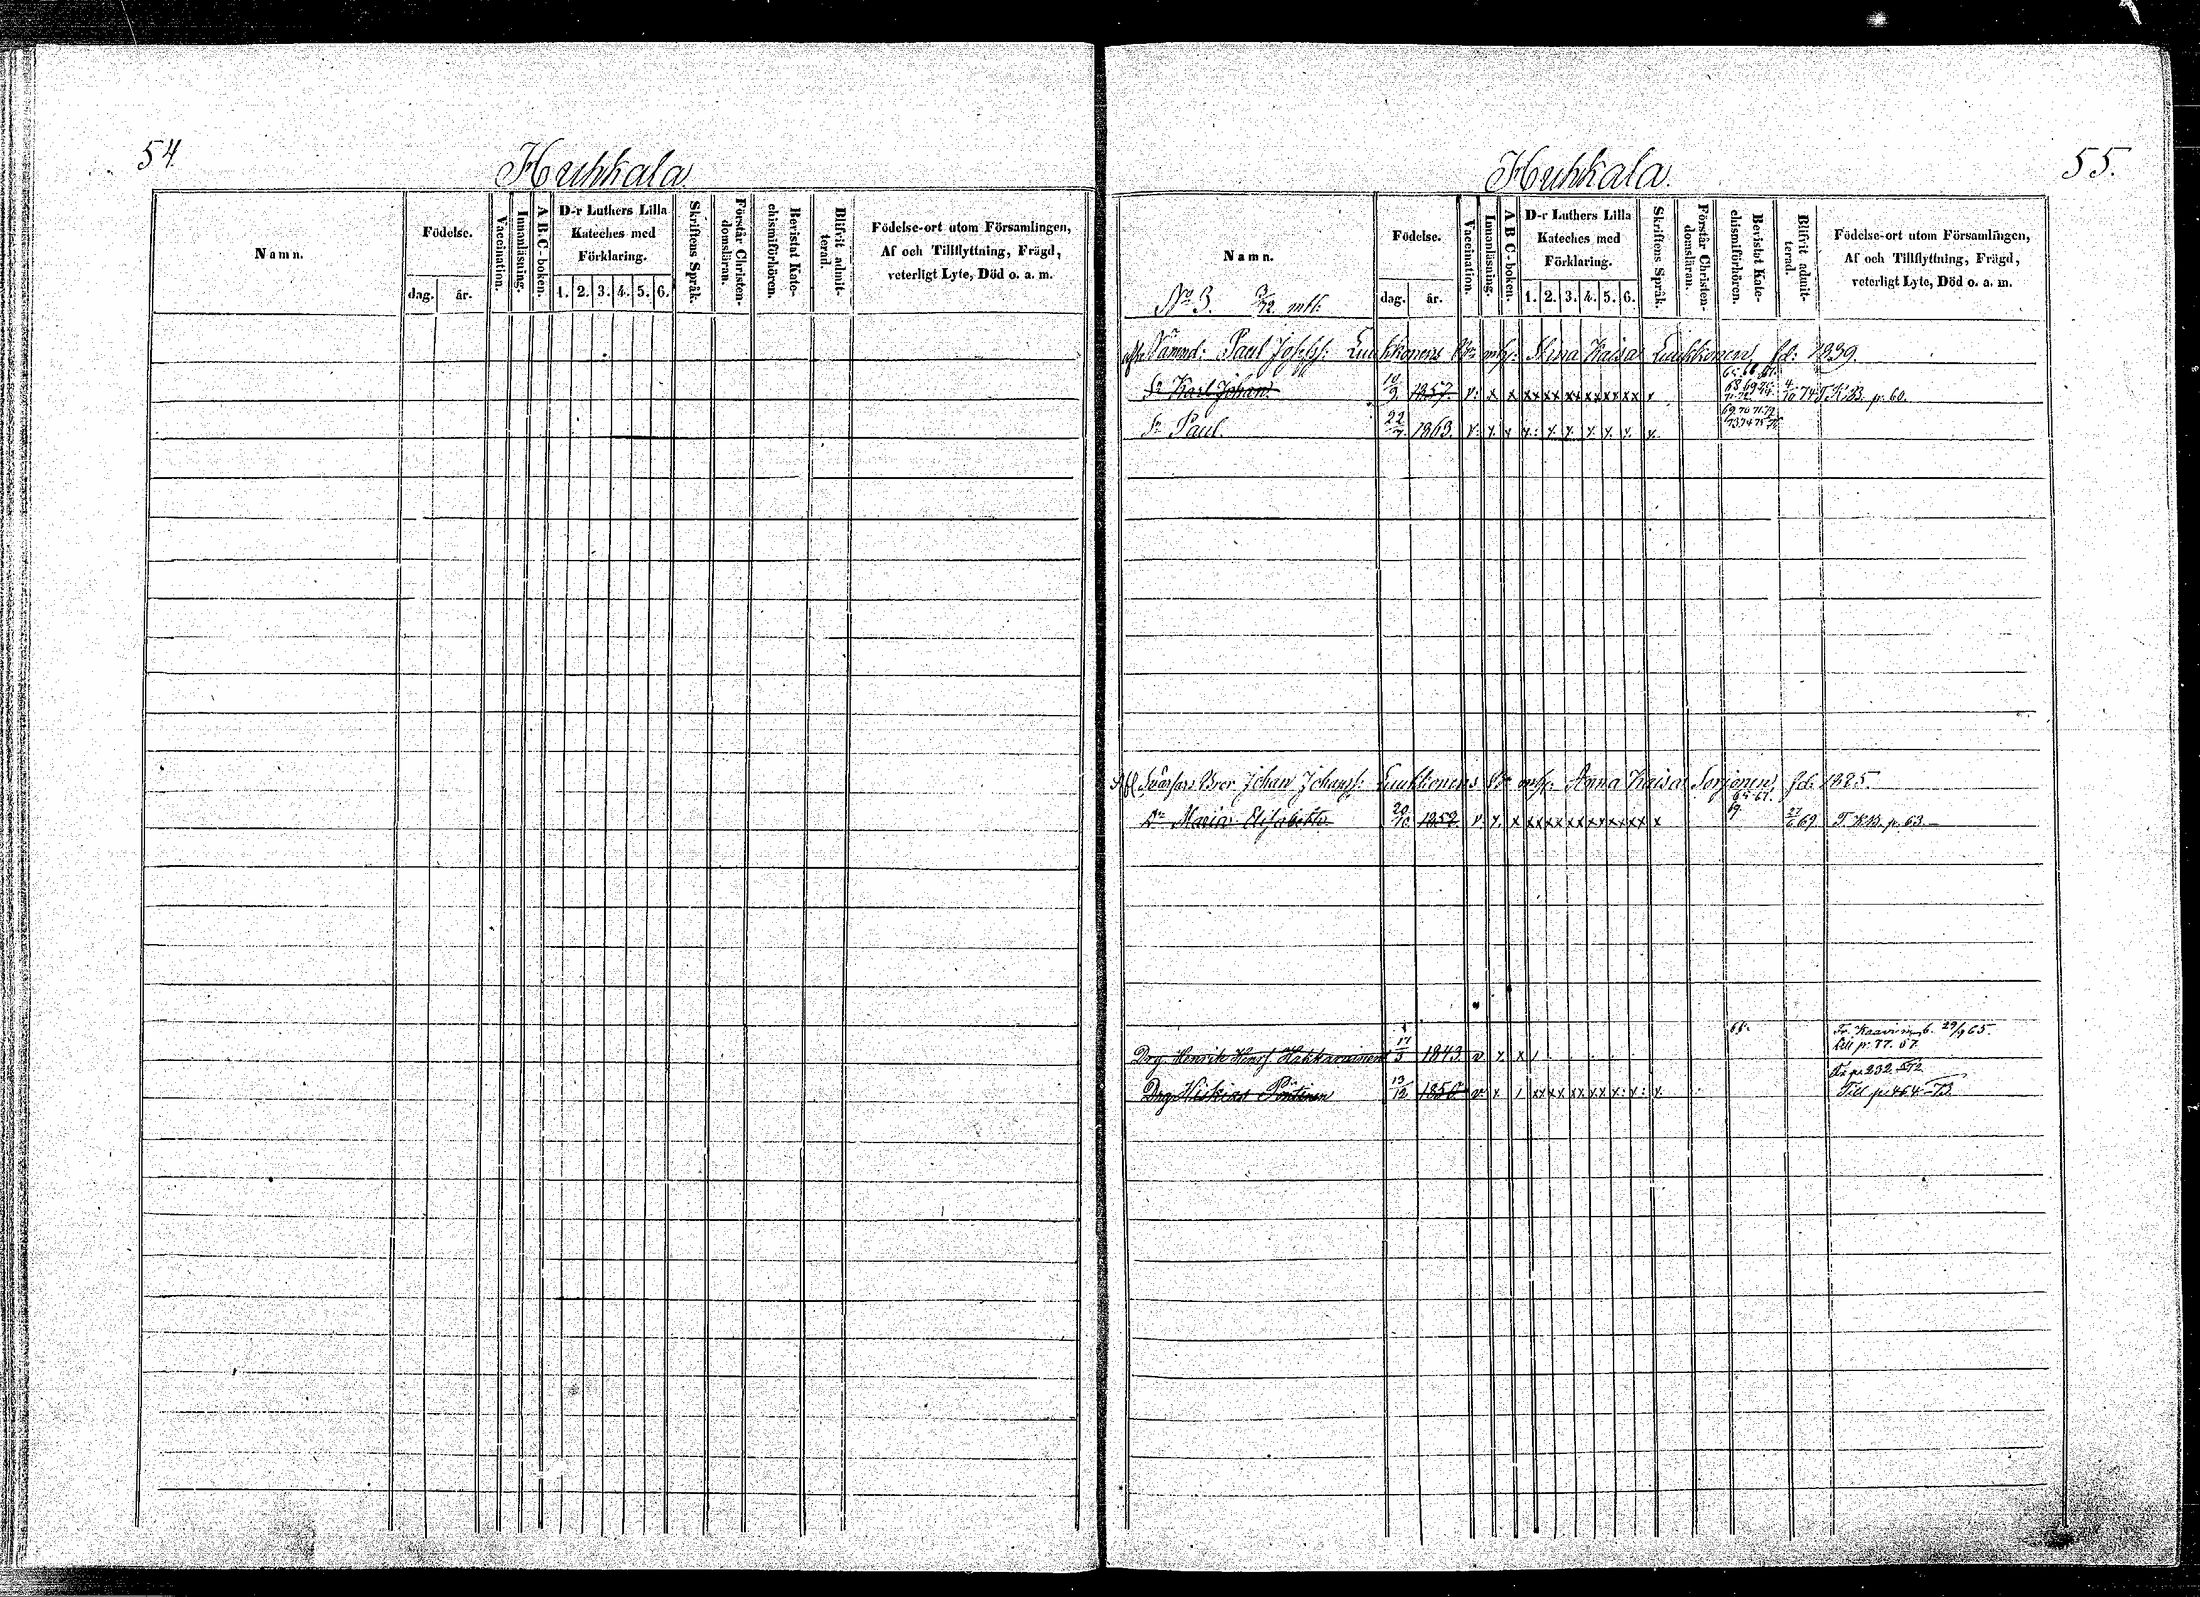 54.
Huhkala
Namn.
Födelse.
dag. år.
Vaccination.
Innanläsning.
A B C-boken.
D-r Luthers Lilla
Kateches med
Förklaring.
1. 2. 3. 4. 5. 6.
Skriftens Språk.
Förstår Christen-
domsläran.
Bevistat Kate-
chismiförhören.
Blifvit admit-
terad.
Födelse-ort utom Församlingen,
Af och Tillflyttning, Frägd,
veterligt Lyte, Död o. a. m.
55.
Huhkala.
Namn.
No 3. mtl:
Födelse.
dag. år.
Vaccination.
Innanläsning.
A B C-boken.
D-r Luthers Lilla
Kateches med
Förklaring.
1. 2. 3. 4. 5. 6.
Skriftens Språk.
Förstår Christen-
domsläran.
Bevistat Kate-
chismiförhören.
Blifvit admit-
terad.
Födelse-ort utom Församlingen,
Af och Tillflyttning, Frägd,
veterligt Lyte, Död o. a. m.
Paul Josephss: Luukkonens Kaisa Luukkonen, fd: 1839.
Sn Karl Johan 10/9. 1857. v: x x xx xx xx xx xx xx x 4/10 74 T. K.B. p. 60.
Sn Paul. 22/7. 1863. v: x. x x: x. x. x. x. x. x.
Johan Johanss: Luukkonens Anna Kaisa Sorjonen, fd. 1825.
65. 67.
Dr Maria Elisabeth 20/10 1852 v. x. x xx xx xx xx xx xx x 69 27/6 69 T. K.B. p. 63.
66. 29/9 65.
Drg. Henrik Henrss Hakkarainen 17/3 1843. v. x. x / p. 77. 67.
p. 232. 72
Drg. Hiskias Pöntinen 13/12 1850 v. x / xx xx xx xx x: x: x. Till p. 464. 73.